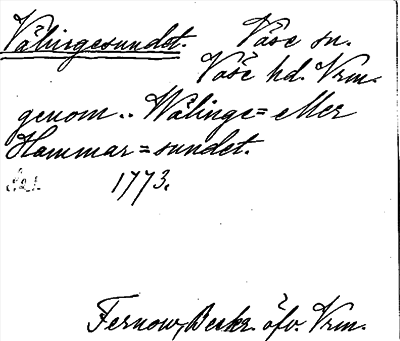 Vålingesundet. Väse sn.
Väse hd. Vrm.
genom .. Wålinge= eller
Hammar=sundet.
1773.
Fernow, Beskr. öfv. Vrm.